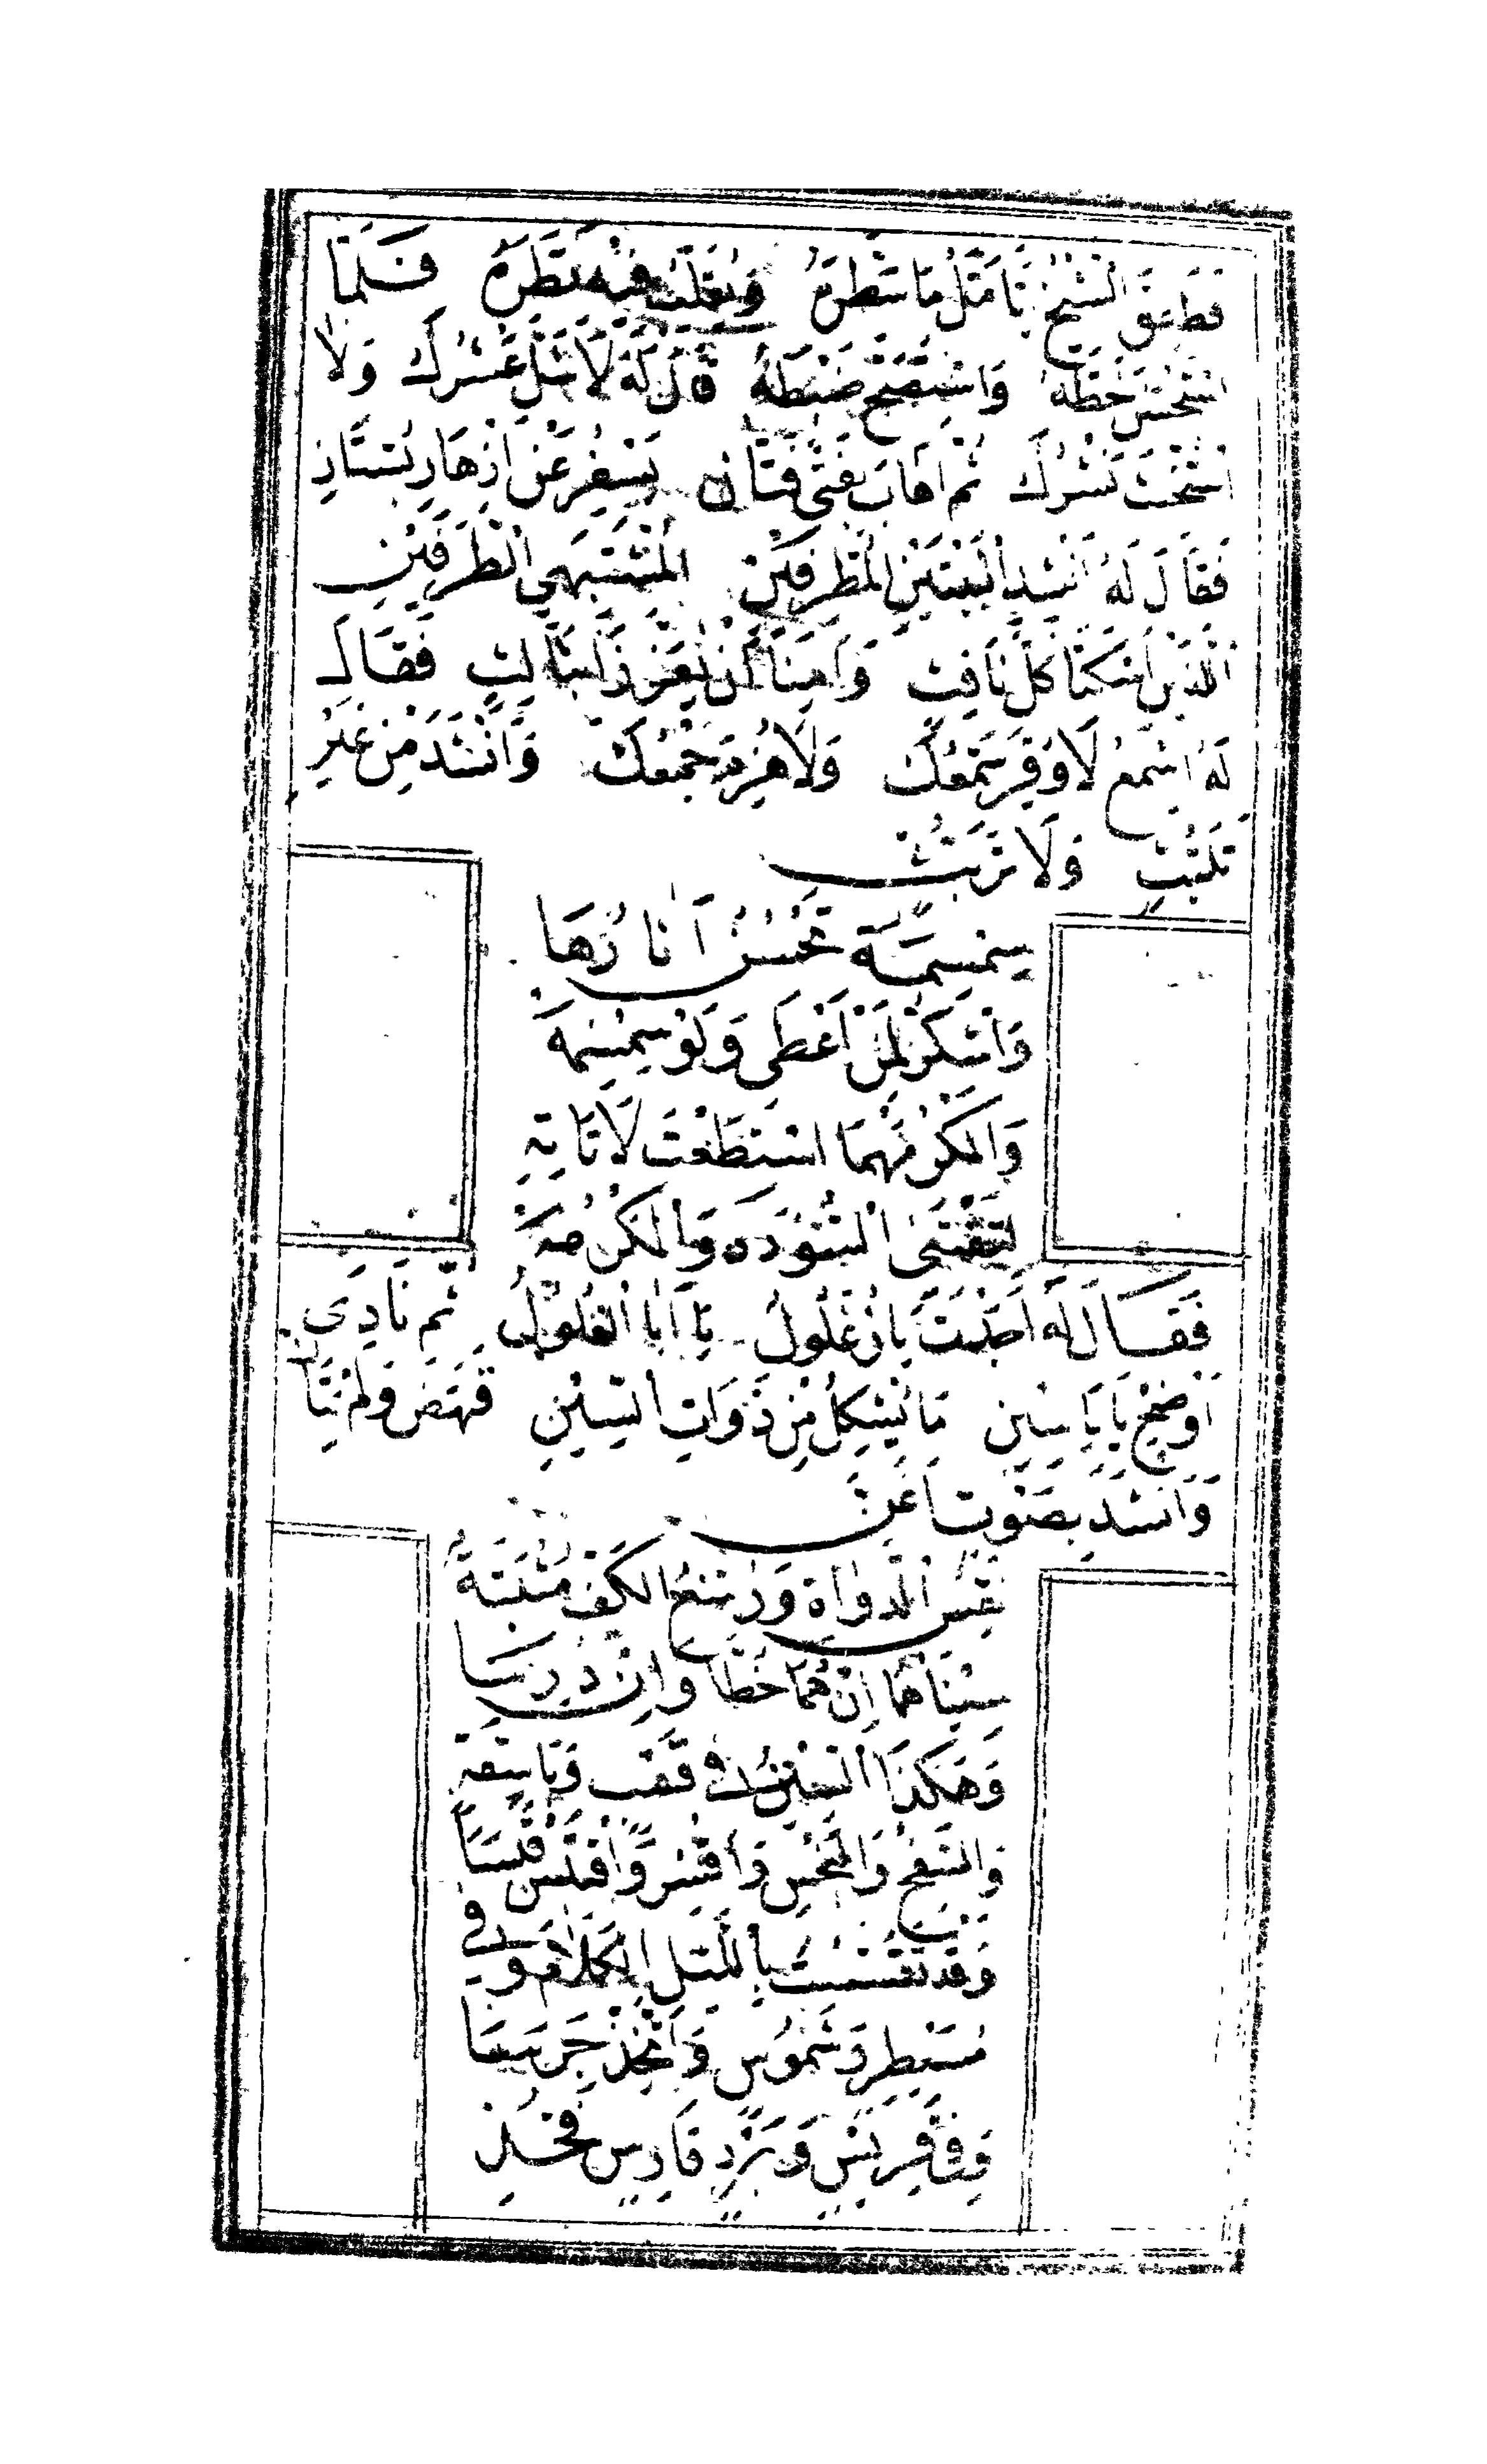 فَطَفِقَ الشَّيْخُ يَتَأَمَّلُ مَا سَطَرَهُ وَيُقَلِّبُ فِيْهِ نَظَرَهُ فَلَمَّا
اسْتَحْسَنَ خَطَّهُ وَاسْتَصَحَّ ضَبْطَهُ قَالَ لَهُ لَا شَلَّ عَشْرُكَ وَلَا
اسْتُخْبِثَ نَشْرُكَ ثُمَّ اَهَابَ بِفَتًى فَتَّانٍ يَسْفِرُ عَنْ اَزْهَارِ بُسْتَانٍ
فَقَالَ لَهُ اَنْشِدِ الْبَيْتَيْنِ الْمُطْرَفَيْنِ الْمُشْتَبِهَيِ الطَّرَفَيْنِ
اللَّذَيْنِ اَسْكَتَا كُلَّ نَافِثٍ وَاَمِنَا اَنْ يُعَزَّزَا بِثَالِثٍ فَقَالَ
لَهُ اسْمَعْ لَا وُقِرَ سَمْعُكَ وَلَا هُزِمَ جَمْعُكَ وَاَنْشَدَ مِنْ غَيْرِ
تَلَبُّثٍ وَلَا تَرَيُّثٍ
سِمْ سِمَةً تَحْسُنُ آثَارُهَا
وَاشْكُرْ لِمَنْ اَعْطَى وَلَوْ سِمْسِمَهْ
وَالْمَكْرُ مَهْمَا اسْتَطَعْتَ لَا تَأْتِهِ
لِتَقْتَنِى السُّؤْدَدَ وَالْمَكْرُمَهْ
فَقَالَ لَهُ اَجَدْتَ يَا زُغْلُولُ يَا اَبَا الْغُلُولِ ثُمَّ نَادَى
اَوْضِحْ يَا يَاسِيْنِ مَا يُشْكِلُ مِنْ ذَوَاتِ السِّيْنِ فَنَهَضَ وَلَمْ يَتَأَنَّ
وَاَنْشَدَ بِصَوْتٍ اَغَنَّ
نِقْسُ الدَّوَاةِ وَرُسْغُ الْكَفِّ مُثْبَتَةٌ
سِيْنَاهُمَا اِنْ هُمَا خُطَّا وَاِنْ دُرِسَا
وَهَكَذَا السِّيْنُ فِي قَسْبٍ وَبَاسِقَةٍ
وَالسَّفْحِ وَالْبَخْسِ وَاقْسِرْ وَاقْتَبِسْ قَبَسَا
وَفِي تَقَسَّسْتُ بِاللَّيْلِ الْكَلَامَ وَفِي
مُسَيْطِرٍ وَشَمُوْسٍ وَاتَّخِذْ جَرَسَا
وَفِي قَرِيْسٍ وَبَرْدٍ قَارِسٍ فَخُذِ